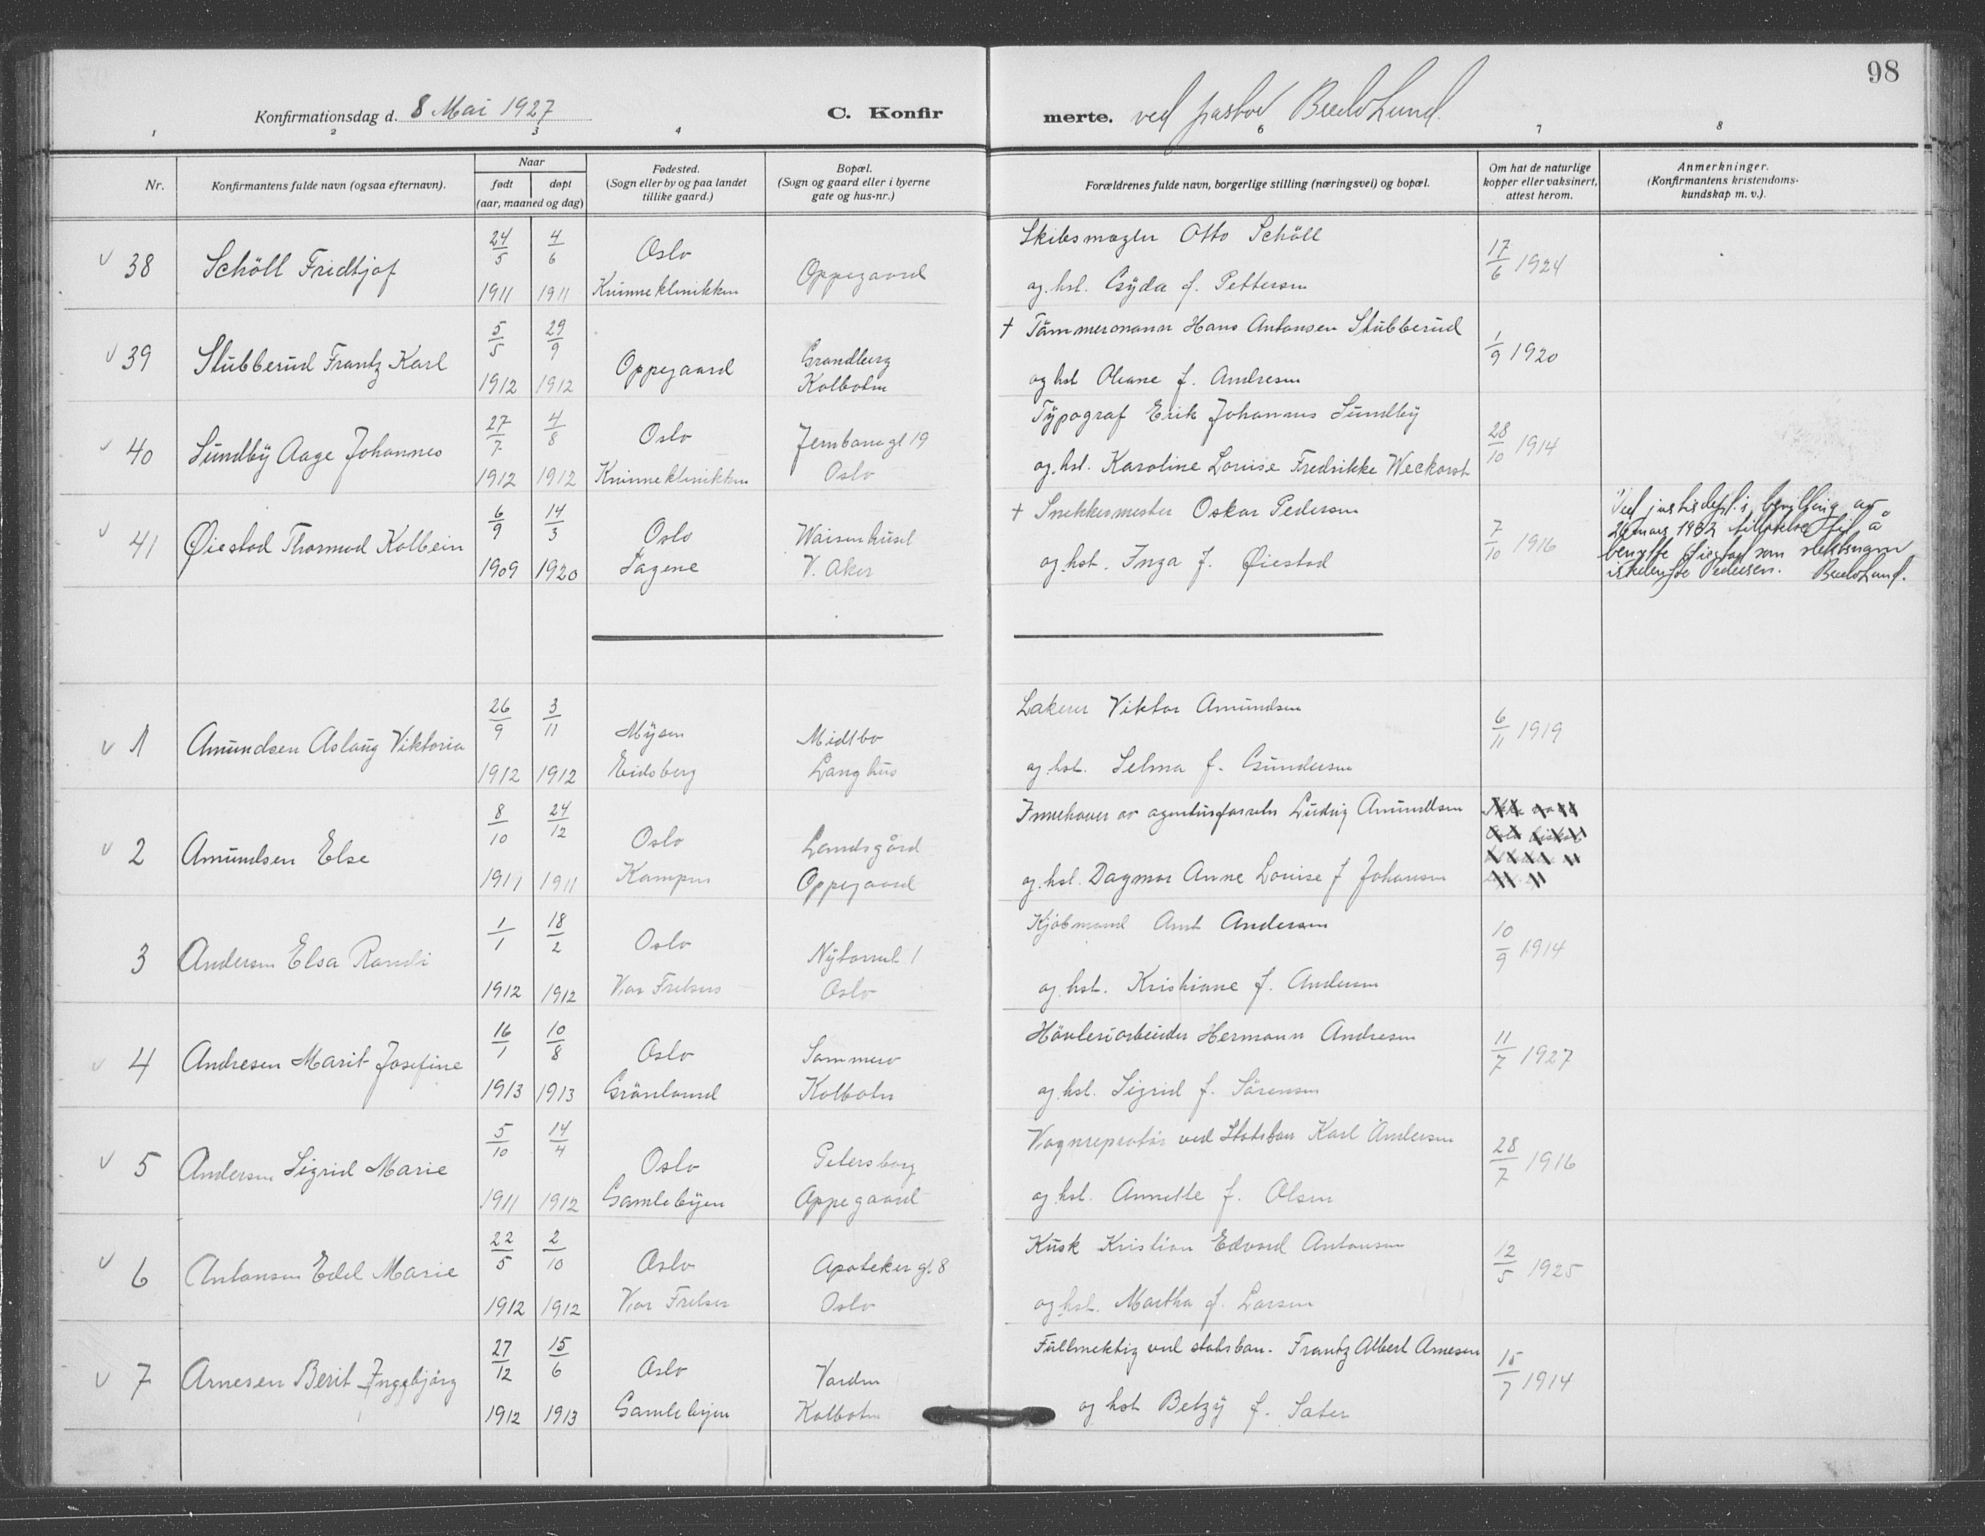 98
Konfirmationsdag d. 8 Mai 1927 C. Konfirmerte. ved pastor
1 2 3 4 6 7 8
Nr. Konfirmantens fulde navn (ogsaa efternavn). Naar født døpt (aar, maaned og dag) Fødested. (Sogn eller by og paa landet tillike gaard.) Bopæl. (Sogn og gaard eller i byerne gate og hus-nr.) Forældrenes fulde navn, borgerlige stilling (næringsvei) og bopæl. Om hat de naturlige kopper eller vaksinert, attest herom. Anmerkninger. (Konfirmantens kristendomskundskap m. v.).
v 38 Schöll Fridtjof 24/5 1911 4/6 1911 Oslo Kvinneklinikken Oppegaard Skibsmægler Otto Schöll 17/6 1924
og hst. Gyda f. Pettersen
v 39 Stubberud Frantz Karl 5/5 1912 29/9 1912 Oppegaard Grandberg Kolbotn + Tömmermann Hans Antonsen Stubberud 1/9 1920
og hst Oleane f. Andresen
v 40 Sundby Aage Johannes 27/7 1912 4/8 1912 Oslo Kvinneklinikken Jernbanegt 19 Oslo Typograf Erik Johannes Sundby 28/10 1914
og hst. Karoline Louise Fredrikke Weckorst
v 41 Øiestad Thormod Kolbein 6/9 1909 14/3 1920 Oslo Sagene Waisenhuset V. Aker + Snekkermester Oskar Pedersen 7/10 1916
og hst. Inga f. Øiestad
Ved justisdept.s bevilling av
26 mars 1932 tillatelse til å
benytte Øiestad som slektsnavn
istedenfor Pedersen.
v 1 Amundsen Aslaug Viktoria 26/9 1912 3/11 1912 Mysen Eidsberg Midtbo Langhus Lakerer Viktor Amundsen 6/11 1919
og hst. Selma f. Gundersen
v 2 Amundsen Else 8/10 1911 24/12 1911 Oslo Kampen Landsgård Oppegaard Innehaver av agenturforretn Ludvig Amundsen
og hst. Dagmar Anne Louise f Johansen
3 Andersen Elsa Randi 1/1 1912 18/2 1912 Oslo Vor Frelsers Nytorvet 1 Oslo Kjöbmand Arnt Andersen 10/9 1914
og hst. Kristiane f. Andersen
v 4 Andresen Marit Josefine 16/1 1913 10/8 1913 Oslo Grönland Sommero Kolbotn Hövleriarbeider Hermann Andresen 11/7 1927
og hst. Sigrid f. Sörensen
v 5 Andersen Sigrid Marie 5/10 1911 14/4 1912 Oslo Gamlebyen Petersborg Oppegaard Vognreparatör ved Statsban Karl Andersen 28/7 1916
og hst. Annette f. Olsen
v 6 Antonsen Edel Marie 22/5 1912 2/10 1912 Oslo Vor Frelser Apoteker gt. 8 Oslo Kusk Kristian Edvard Antonsen 12/5 1925
og hst. Martha f. Larsen
v 7 Arnesen Berit Ingebjörg 27/12 1912 15/6 1913 Oslo Gamlebyen Varden Kolbotn Fullmektig ved statsban. Frantz Albert Arnesen 15/7 1914
og hst Betzy f. Sater